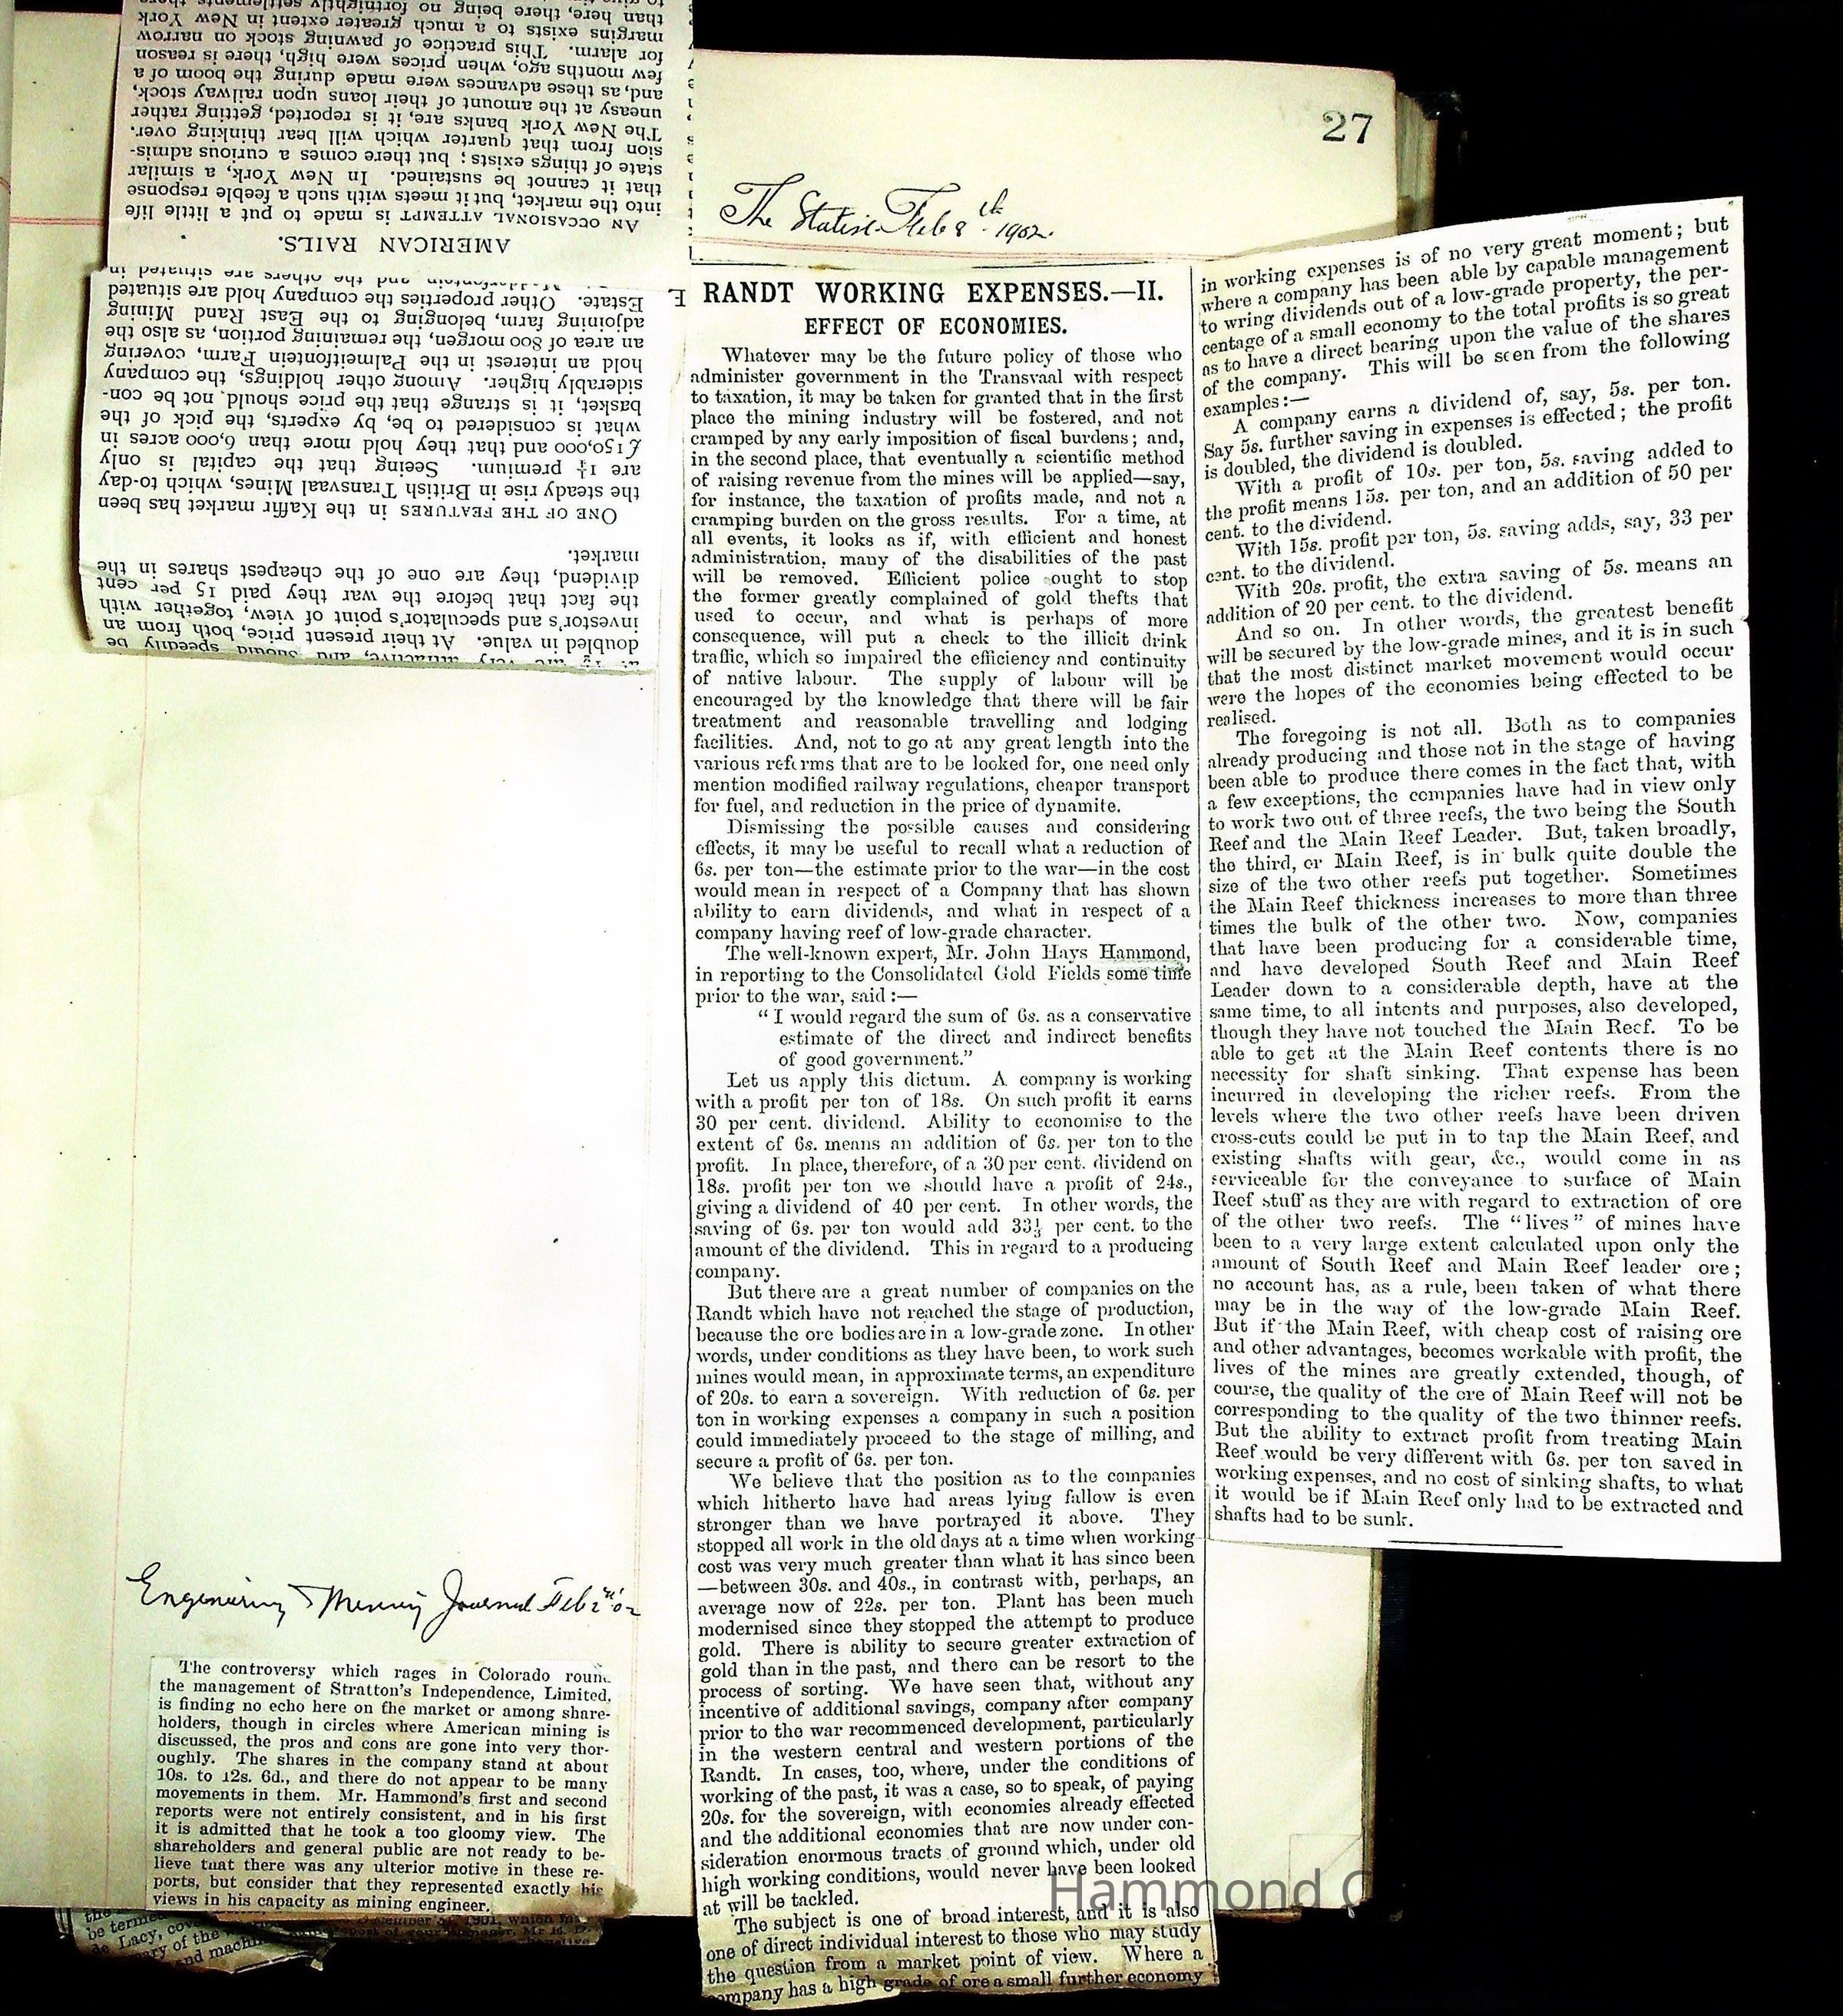 27
The Statist Feb 8th 1902.
RANDT WORKING EXPENSES.—II.
EFFECT OF ECONOMIES.
Whatever may be the future policy of those who
administer government in the Transvaal with respect
to taxation, it may be taken for granted that in the first
place the mining industry will be fostered, and not
cramped by any early imposition of fiscal burdens; and,
in the second place, that eventually a scientific method
of raising revenue from the mines will be applied—say,
for instance, the taxation of profits made, and not a
cramping burden on the gross results. For a time, at
all events, it looks as if, with efficient and honest
administration, many of the disabilities of the past
will be removed. Efficient police ought to stop
the former greatly complained of gold thefts that
used to occur, and what is perhaps of more
consequence, will put a check to the illicit drink
traffic, which so impaired the efficiency and continuity
of native labour. The supply of labour will be
encouraged by the knowledge that there will be fair
treatment and reasonable travelling and lodging
facilities. And, not to go at any great length into the
various reforms that are to be looked for, one need only
mention modified railway regulations, cheaper transport
for fuel, and reduction in the price of dynamite.
Dismissing the possible causes and considering
effects, it may be useful to recall what a reduction of
6s. per ton—the estimate prior to the war—in the cost
would mean in respect of a Company that has shown
ability to earn dividends, and what in respect of a
company having reef of low-grade character.
The well-known expert, Mr. John Hays Hammond,
in reporting to the Consolidated Gold Fields some time
prior to the war, said:—
"I would regard the sum of 6s. as a conservative
estimate of the direct and indirect benefits
of good government."
Let us apply this dictum. A company is working
with a profit per ton of 18s. On such profit it earns
30 per cent. dividend. Ability to economise to the
extent of 6s. means an addition of 6s. per ton to the
profit. In place, therefore, of a 30 per cent. dividend on
18s. profit per ton we should have a profit of 24s.,
giving a dividend of 40 per cent. In other words, the
saving of 6s. per ton would add 33⅓ per cent. to the
amount of the dividend. This in regard to a producing
company.
But there are a great number of companies on the
Randt which have not reached the stage of production,
because the ore bodies are in a low-grade zone. In other
words, under conditions as they have been, to work such
mines would mean, in approximate terms, an expenditure
of 20s. to earn a sovereign. With reduction of 6s. per
ton in working expenses a company in such a position
could immediately proceed to the stage of milling, and
secure a profit of 6s. per ton.
We believe that the position as to the companies
which hitherto have had areas lying fallow is even
stronger than we have portrayed it above. They
stopped all work in the old days at a time when working
cost was very much greater than what it has since been
—between 30s. and 40s., in contrast with, perhaps, an
average now of 22s. per ton. Plant has been much
modernised since they stopped the attempt to produce
gold. There is ability to secure greater extraction of
gold than in the past, and there can be resort to the
process of sorting. We have seen that, without any
incentive of additional savings, company after company
prior to the war recommenced development, particularly
in the western central and western portions of the
Randt. In cases, too, where, under the conditions of
working of the past, it was a case, so to speak, of paying
20s. for the sovereign, with economies already effected
and the additional economies that are now under con-
sideration enormous tracts of ground which, under old
high working conditions, would never have been looked
at will be tackled.
The subject is one of broad interest, and it is also
one of direct individual interest to those who may study
the question from a market point of view. Where a
ompany has a high grade of ore a small further economy
in working expenses is of no very great moment; but
where a company has been able by capable management
to wring dividends out of a low-grade property, the per-
centage of a small economy to the total profits is so great
as to have a direct bearing upon the value of the shares
of the company. This will be seen from the following
examples:—
A company earns a dividend of, say, 5s. per ton.
Say 5s. further saving in expenses is effected; the profit
is doubled, the dividend is doubled.
With a profit of 10s. per ton, 5s. saving added to
the profit means 15s. per ton, and an addition of 50 per
cent. to the dividend.
With 15s. profit per ton, 5s. saving adds, say, 33 per
cent. to the dividend.
With 20s. profit, the extra saving of 5s. means an
addition of 20 per cent. to the dividend.
And so on. In other words, the greatest benefit
will be secured by the low-grade mines, and it is in such
that the most distinct market movement would occur
were the hopes of the economies being effected to be
realised.
The foregoing is not all. Both as to companies
already producing and those not in the stage of having
been able to produce there comes in the fact that, with
a few exceptions, the companies have had in view only
to work two out of three reefs, the two being the South
Reef and the Main Reef Leader. But, taken broadly,
the third, or Main Reef, is in bulk quite double the
size of the two other reefs put together. Sometimes
the Main Reef thickness increases to more than three
times the bulk of the other two. Now, companies
that have been producing for a considerable time,
and have developed South Reef and Main Reef
Leader down to a considerable depth, have at the
same time, to all intents and purposes, also developed,
though they have not touched the Main Reef. To be
able to get at the Main Reef contents there is no
necessity for shaft sinking. That expense has been
incurred in developing the richer reefs. From the
levels where the two other reefs have been driven
cross-cuts could be put in to tap the Main Reef, and
existing shafts with gear, &c., would come in as
serviceable for the conveyance to surface of Main
Reef stuff as they are with regard to extraction of ore
of the other two reefs. The "lives" of mines have
been to a very large extent calculated upon only the
amount of South Reef and Main Reef leader ore;
no account has, as a rule, been taken of what there
may be in the way of the low-grade Main Reef.
But if the Main Reef, with cheap cost of raising ore
and other advantages, becomes workable with profit, the
lives of the mines are greatly extended, though, of
course, the quality of the ore of Main Reef will not be
corresponding to the quality of the two thinner reefs.
But the ability to extract profit from treating Main
Reef would be very different with 6s. per ton saved in
working expenses, and no cost of sinking shafts, to what
it would be if Main Reef only had to be extracted and
shafts had to be sunk.
doubled in value. At their present price, both from an
investor's and speculator's point of view, together with
the fact that before the war they paid 15 per cent
dividend, they are one of the cheapest shares in the
market.
ONE OF THE FEATURES in the Kaffir market has been
the steady rise in British Transvaal Mines, which to-day
are 1¼ premium. Seeing that the capital is only
£150,000 and that they hold more than 6,000 acres in
what is considered to be, by experts, the pick of the
basket, it is strange that the price should not be con-
siderably higher. Among other holdings, the company
hold an interest in the Palmeitfontein Farm, covering
an area of 800 morgen, the remaining portion, as also the
adjoining farm, belonging to the East Rand Mining
Estate. Other properties the company hold are situated
and the others are situated in
AMERICAN RAILS.
AN OCCASIONAL ATTEMPT is made to put a little life
into the market, but it meets with such a feeble response
that it cannot be sustained. In New York, a similar
state of things exists; but there comes a curious admis-
sion from that quarter which will bear thinking over.
The New York banks are, it is reported, getting rather
uneasy at the amount of their loans upon railway stock,
and, as these advances were made during the boom of a
few months ago, when prices were high, there is reason
for alarm. This practice of pawning stock on narrow
margins exists to a much greater extent in New York
than here, there being no fortnightly settlements there
Engineering & Mining Journal Feb 2nd '02
The controversy which rages in Colorado roun
the management of Stratton's Independence, Limited,
is finding no echo here on the market or among share-
holders, though in circles where American mining is
discussed, the pros and cons are gone into very thor-
oughly. The shares in the company stand at about
10s. to 12s. 6d., and there do not appear to be many
movements in them. Mr. Hammond's first and second
reports were not entirely consistent, and in his first
it is admitted that he took a too gloomy view. The
shareholders and general public are not ready to be-
lieve that there was any ulterior motive in these re-
ports, but consider that they represented exactly his
views in his capacity as mining engineer.
Hammond C